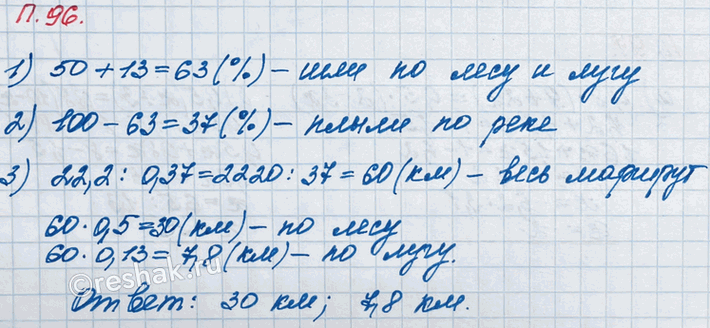 П. 96.
1) 50 + 13 = 63 (%) – шли по лесу и лугу
2) 100 – 63 = 37 (%) – плыли по реке
3) 22,2 : 0,37 = 2220 : 37 = 60 (км) – весь маршрут
60 · 0,5 = 30 (км) – по лесу
60 · 0,13 = 7,8 (км) – по лугу.
©reshak.ru
Ответ: 30 км; 7,8 км.